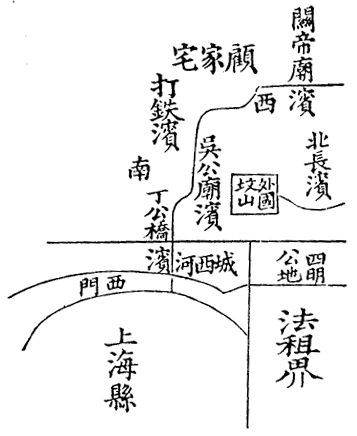 關帝廟濱
顧家宅
西
打鉄濱
北長濱
吳公廟濱
外國
坟山
南
丁公橋濱
城西河
四明
公地
西門
法租界
上海縣